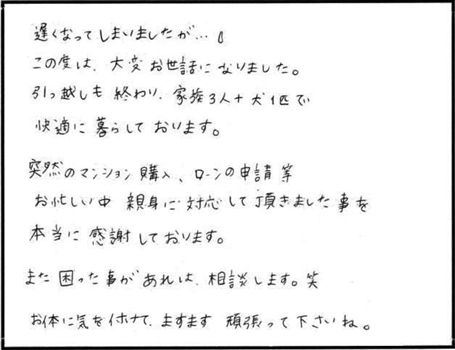 遅くなってしまいましたが…。
この度は、大変お世話になりました。
引っ越しも 終わり、家族3人+犬1匹で
快適に暮らしております。
突然のマンション購入、ローンの申請等
お忙しい中 親身に対応して頂きました事を
本当に感謝しております。
また困った事があれば、相談します。笑
お体に気を付けて、ますます 頑張って下さいね。